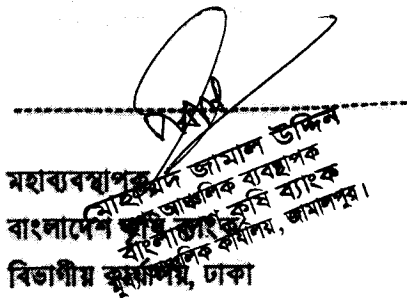 মহাব্যবস্থাপক
বাংলাদেশ কৃষি ব্যাংক
বিভাগীয় কার্যালয়, ঢাকা
মোহাম্মদ জামাল উদ্দিন
আঞ্চলিক ব্যবস্থাপক
বাংলাদেশ কৃষি ব্যাংক
মুখ্য আঞ্চলিক কার্যালয়, জামালপুর।